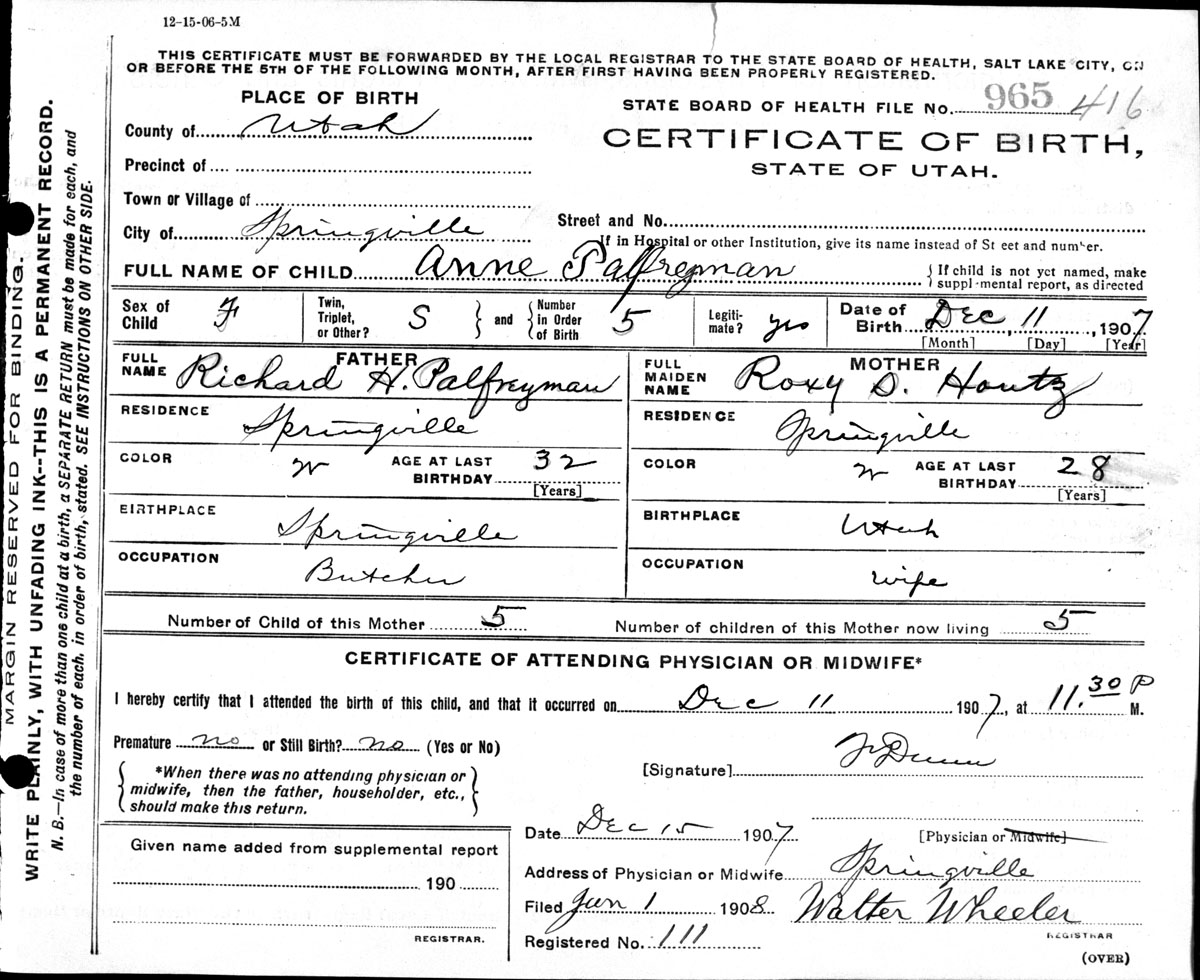 12-15-06-5M
THIS CERTIFICATE MUST BE FORWARDED BY THE LOCAL REGISTRAR TO THE STATE BOARD OF HEALTH, SALT LAKE CITY, ON
OR BEFORE THE 5TH OF THE FOLLOWING MONTH, AFTER FIRST HAVING BEEN PROPERLY REGISTERED.
PLACE OF BIRTH
STATE BOARD OF HEALTH FILE No. 965 416
County of Utah
CERTIFICATE OF BIRTH,
STATE OF UTAH.
Precinct of
Town or Village of
Street and No.
City of Springville
If in Hospital or other Institution, give its name instead of St eet and number.
FULL NAME OF CHILD Anne Palfreyman
If child is not yet named, make
suppl·mental report, as directed
Sex of Child F Twin, Triplet, or Other? S and Number in Order of Birth 5 Legiti-mate? yes Date of Birth Dec, 11, 1907
[Month] [Day] [Year]
FATHER MOTHER
FULL NAME Richard H. Palfreyman FULL MAIDEN NAME Roxy D. Houtz
RESIDENCE Springville RESIDENCE Springville
COLOR W AGE AT LAST BIRTHDAY 32 [Years] COLOR W AGE AT LAST BIRTHDAY 28 [Years]
BIRTHPLACE Springville BIRTHPLACE Utah
OCCUPATION Butcher OCCUPATION wife
Number of Child of this Mother 5 Number of children of this Mother now living 5
CERTIFICATE OF ATTENDING PHYSICIAN OR MIDWIFE*
I hereby certify that I attended the birth of this child, and that it occurred on Dec 11 1907, at 11.30 P M.
Premature no or Still Birth? no (Yes or No)
*When there was no attending physician or
midwife, then the father, householder, etc.,
should make this return.
[Signature] Dunn
Date Dec 15 1907 [Physician or Midwife]
Given name added from supplemental report
190
REGISTRAR.
Address of Physician or Midwife Springville
Filed Jan 1 1908 Walter Wheeler
REGISTRAR
Registered No. 111
(OVER)
MARGIN RESERVED FOR BINDING.
WRITE PLAINLY, WITH UNFADING INK--THIS IS A PERMANENT RECORD.
N. B.—In case of more than one child at a birth, a SEPARATE RETURN must be made for each, and
the number of each, in order of birth, stated. SEE INSTRUCTIONS ON OTHER SIDE.